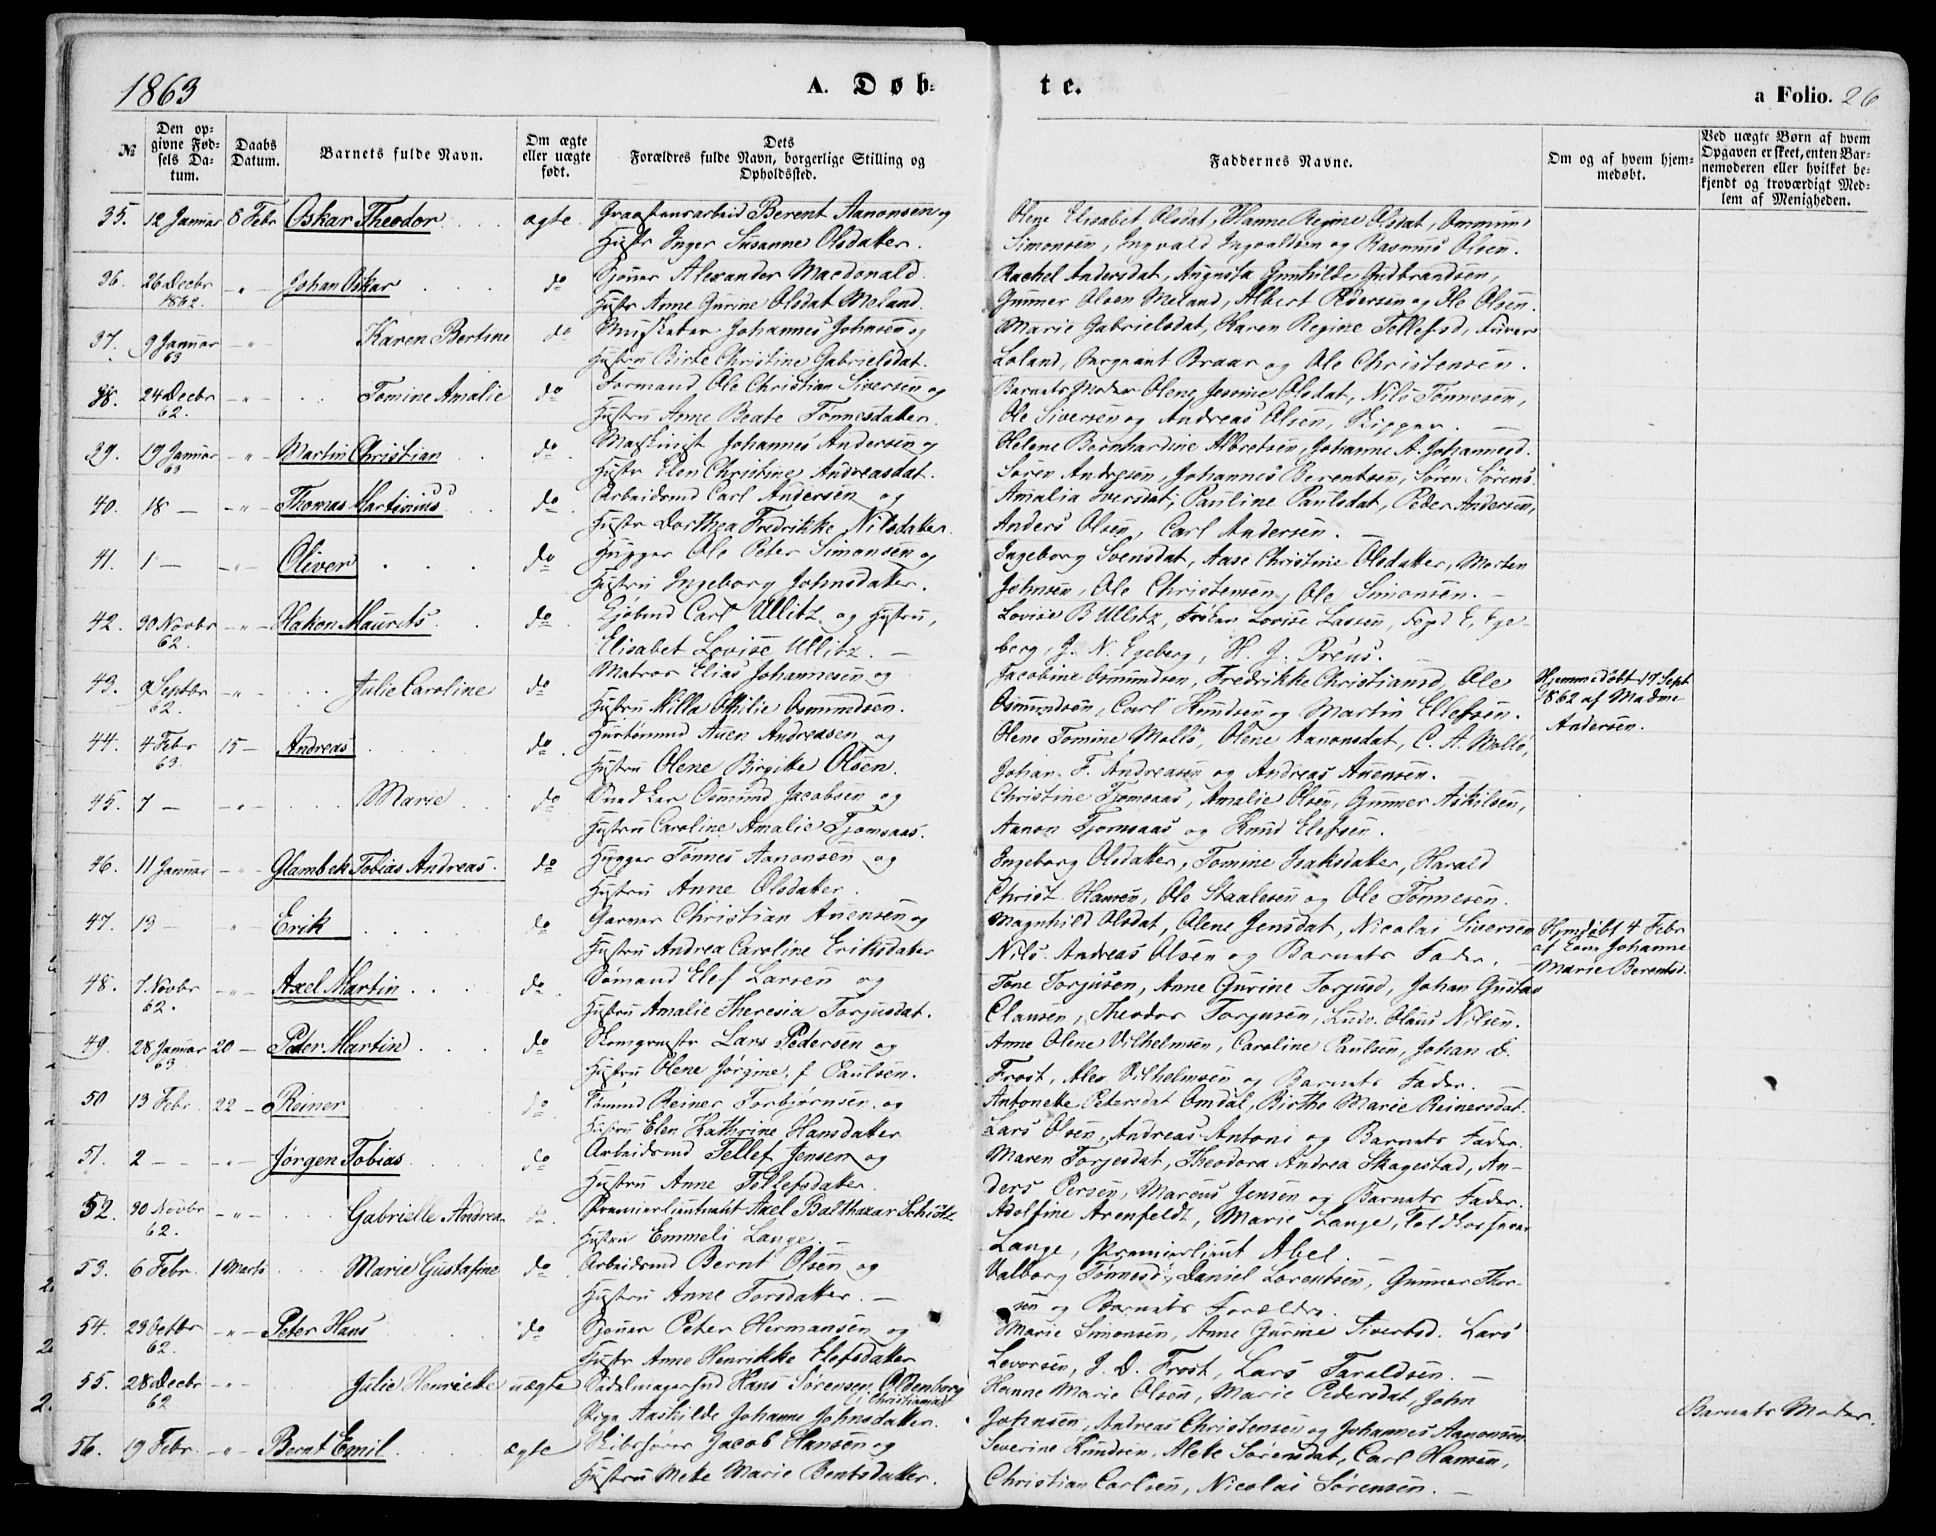 1863
A. Døb-
te.
a Folio. 26
№
Den op-
givne Fød-
sels Da-
tum.
Daabs
Datum.
Barnets fulde Navn.
Om ægte
eller uægte
født.
Dets
Forældres fulde Navn, borgerlige Stilling og
Opholdssted.
Faddernes Navne.
Om og af hvem hjem-
medøbt.
Ved uægte Børn af hvem
Opgaven er skeet, enten Bar-
nemoderen eller hvilket be-
kjendt og troværdigt Med-
lem af Menigheden.
35. 12 Januar 8 Febr Oskar Theodor ægte. Berent Aanonsen og
Hustr Inger Susanne Olsdatter.
Olene Elisabet Olsdat, Hanne Regine Olsdat,
Simonsen, Ingvald Ingvaldsen og Rasmus Olsen.
36. 26 Decbr 1862. -"- Johan Oskar do Alexander Macdonald.
Hustr Anne Gurine Olsdat Meland.
Rachel Andersdat, Augusta Gunhilde Gudbrandsen,
Gunner Olsen Meland, Albert Pedersen og Ole Olsen.
37. 9 Januar 63 -"- Karen Bertine do Musketer Johannes Johnsen og
Hustru Birte Christine Gabrielsdat.
Marie Gabrielsdat, Karen Regine Tellefsd,
Loland, Sergeant Braar og Ole Christensen.
38. 24 Decbr 62. -"- Tomine Amalie do Formand Ole Christian Siversen og
Hustru Anne Beate Tønnesdatter.
Barnets Moder Olene Jesine Olsdat, Nils Tønnesen,
Ole Siversen og Andreas Olsen, Skipper.
39. 19 Januar 63 -"- Martin Christian do. Maskinist Johannes Andersen og
Hustr Elen Christine Andreasdat.
Helene Bernhardine Albretsen, Johanne A. Johannesd.
Søren Andersen, Johannes Berentsen, Søren Sørens.
40. 18 - -"- Thomas Martinius do. Arbeidsmd Carl Andersen og
Hustr Dorthea Fredrikke Nilsdatter.
Amalia Iversdat, Pauline Paulsdat, Peder Andersen,
Anders Olsen, Carl Andersen.
41. 1 - -"- Oliver do Hugger Ole Peter Simonsen og
Hustru Ingeborg Johnsdatter.
Ingeborg Svensdat, Aase Christine Olsdatter, Morten
Johnsen, Ole Christensen, Ole Simonsen.
42. 30 Novbr 62. -"- Hakon Maurits do. Kjøbmd Carl Ullitz og Hustru,
Elisabet Lovise Ullitz.
Lovise B Ullitz, Frøken Lovise Lassen, Fogd E. Ege-
berg, J. N. Egeberg, H. J. Preus.
43. 9 Septbr 62. -"- Julie Caroline do Matros Elias Johannesen og
Hustru Milla Othilie Osmundsen.
Jacobine Osmundsen, Fredrikke Christiansd, Ole
Osmundsen, Carl Knudsen og Martin Ellefsen.
Hjemmedøbt 17 Sept
1862 af Madme
Andersen.
44. 4 Febr 63. 15 - Andreas do. Auen Andreasen og
Hustru Olene Birgitte Olsen.
Olene Tomine Molle, Olene Aanonsdat, C. A. Molle,
Johan F. Andreasen og Andreas Auensen.
45. 7 - -"- Marie do Snedker Osmund Jacobsen og
Hustru Caroline Amalie Tjomsaas.
Christine Tjomsaas, Amalie Olsen, Gunner Askilsen,
Aanon Tjomsaas og Knud Elefsen.
46. 11 Januar -"- Glambek Tobias Andreas. do Hugger Tønnes Aanonsen og
Hustru Anne Olsdatter.
Ingeborg Olsdatter, Tomine Isaksdatter, Harald
Christ. Hansen, Ole Staalesen og Ole Tønnesen.
47. 13 - -"- Erik do Garver Christian Auensen og
Hustru Andrea Caroline Eriksdatter
Magnhild Olsdat, Olene Jensdat, Nicolai Siversen
Nils Andreas Olsen og Barnets Fader.
Hjmdøbt 4 Febr
af Johanne
Marie Berentsd.
48. 7 Novbr 62. -"- Axel Martin do. Sømand Elef Larsen og
Hustru Amalie Theresia Torjusdat.
Tone Torjusen, Anne Gurine Torjusd, Johan Gustav
Clausen, Theodor Torjusen, Ludv. Olaus Nilsen.
49. 28 Januar 63. 20 - Peder Martin do Lars Pedersen og
Hustru Olene Jørgine, f Paulsen.
Anne Olene Vilhelmsen, Caroline Paulsen, Johan D.
Frost, Alex Vilhelmsen og Barnets Fader.
50 13 Febr. 22 - Reiner do Tømmd Reiner Torbjørnsen og
Hustru Elen Kathrine Hansdatter
Antonette Petersdat Omdal, Birthe Marie Reinersdat.
Lars Olsen, Andreas Antoni og Barnets Fader.
51. 2 - -"- Jørgen Tobias do Arbeidsmd Tellef Jensen og
Hustru Anne Tellefsdatter.
Maren Torjesdat, Theodora Andrea Skagestad, An-
ders Persen, Marcus Jensen og Barnets Fader.
52. 30 Novbr 62. -"- Gabrielle Andrea do Premierlieutnant Axel Balthazar Schiøtz
Hustru Emmeli Lange.
Adolfine Arenfeldt, Marie Lange, Toldkasserer
Lange, Premierlieut Abel.
53. 6 Febr. 1 Marts Marie Gustafine do Arbeidsmd Bernt Olsen og
Hustru Anne Torsdatter.
Valborg Tønnesd, Daniel Lorentsen, Gunner Thor-
sen og Barnets Forældre.
54. 23 Octbr 62. -"- Peter Hans do Peter Hermansen og
Hustr Anne Henrikke Elefsdatter
Marie Simonsen, Anne Gurine Sivertsd. Lars
Levorsen, J. D. Frost, Lars Taraldsen.
55. 28 Decbr 62 -"- Julie Henriette uægte Sadelmagersvd Hans Sørensen Oldenborg
i Christiansand
Pige Aashilde Johanne Johnsdatter.
Hanne Marie Olsen, Marie Pedersdat, John
Johnsen, Andreas Christensen og Johannes Aanonsen
Barnets Moder.
56. 19 Febr. -"- Bernt Emil ægte Skibsfører Jacob Hansen og
Hustru Meke Marie Bentsdatter.
Severine Knudsen, Aleke Sørensdat, Carl Hansen,
Christian Carlsen, Nicolai Sørensen.